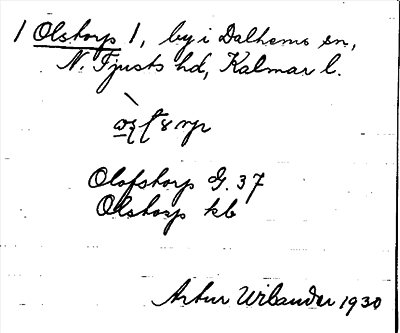 1 Olstorp 1, by i Dalhems sn,
N. Tjusts hd, Kalmar l.
Olofstorp G. 37
Olstorp kb
Artur Wilander 1930